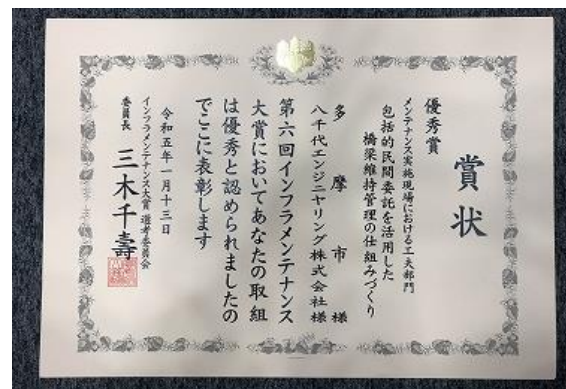 賞状
優秀賞
メンテナンス実施現場における工夫部門
包括的民間委託を活用した
橋梁維持管理の仕組みづくり
多摩市様
八千代エンジニヤリング株式会社様
第六回インフラメンテナンス
大賞においてあなたの取組
は優秀と認められましたの
でここに表彰します
令和五年一月十三日
インフラメンテナンス大賞 選考委員会
委員長 三木千壽